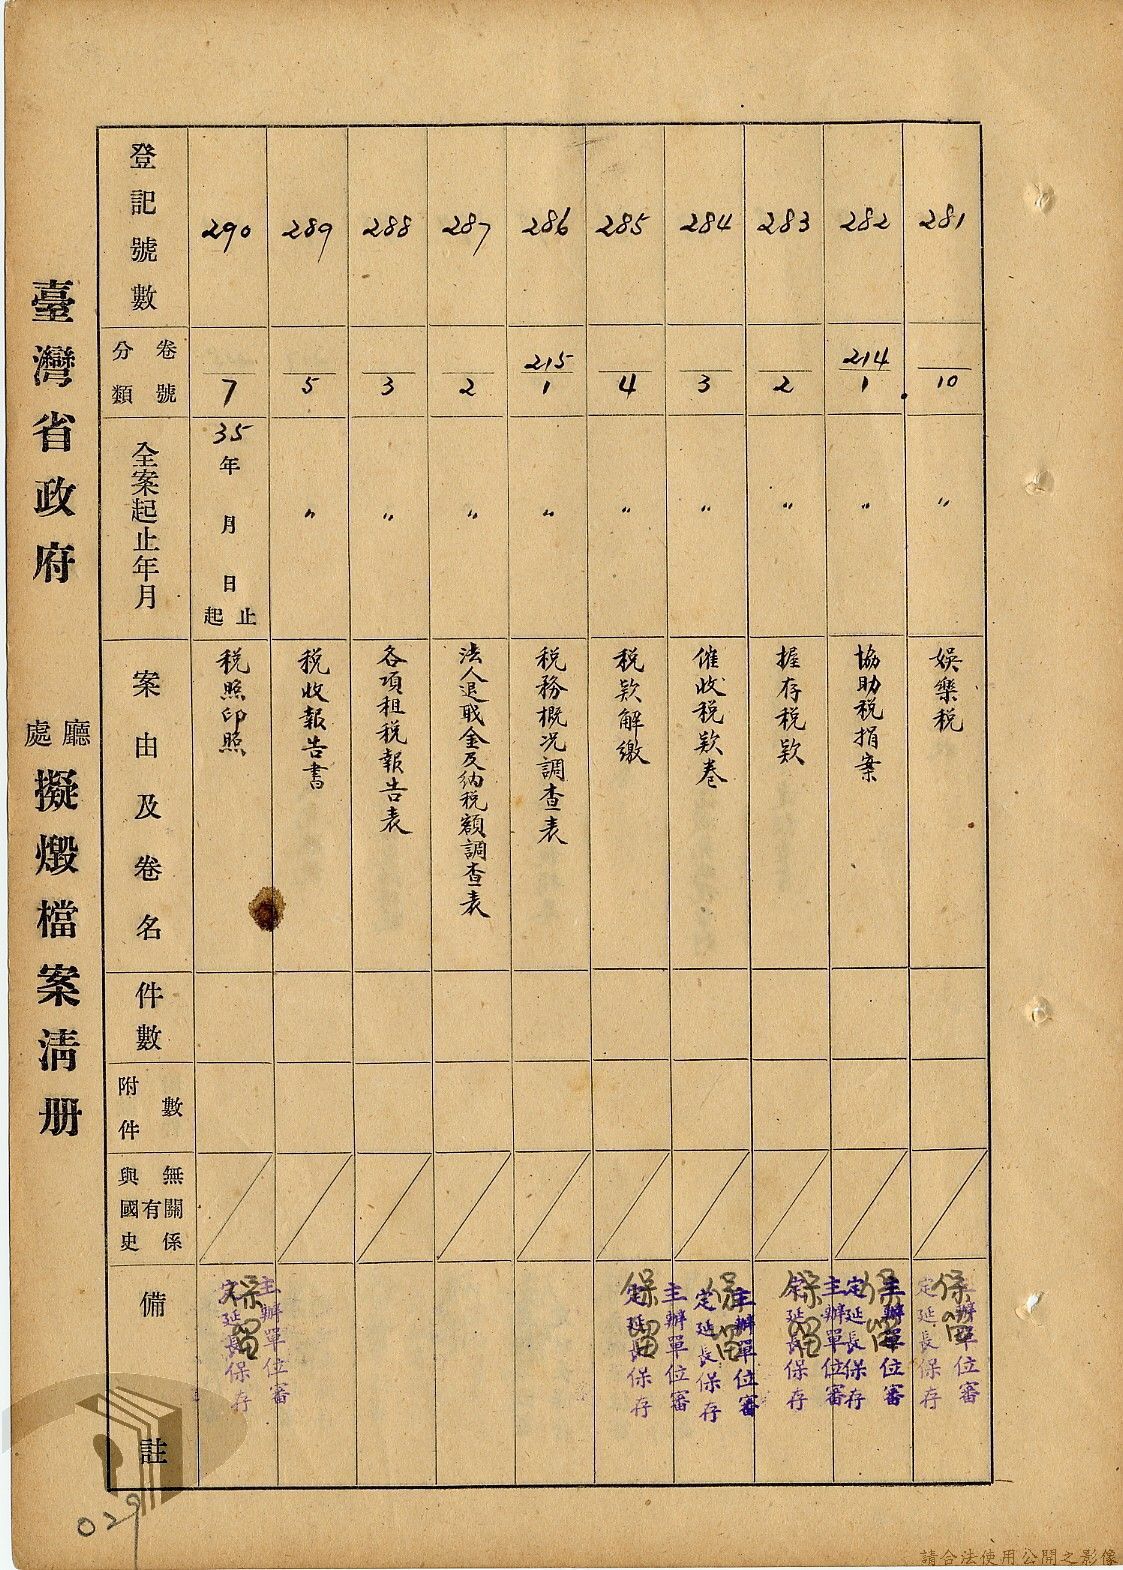 臺灣省政府
廳
處
擬燬檔案清册
登記號數
281
282
283
284
285
286
287
288
289
290
分類
卷號
10
214
1
2
3
4
215
1
2
3
5
7
全案起止年月
〃
〃
〃
〃
〃
〃
〃
〃
〃
35年 月 日
起
止
案由及卷名
娛樂稅
協助稅捐案
握存稅欵
催收稅欵卷
稅欵解繳
稅務概況調查表
法人退职金及納稅額調查表
各項租稅報告表
稅收報告書
稅照印照
件數
附件
數
與國史
有
無關係
備註
保留
主辦單位審
定延長保存
保留
主辦單位審
定延長保存
保留
主辦單位審
定延長保存
保留
主辦單位審
定延長保存
保留
主辦單位審
定延長保存
保留
主辦單位審
定延長保存
029
請合法使用公開之影像